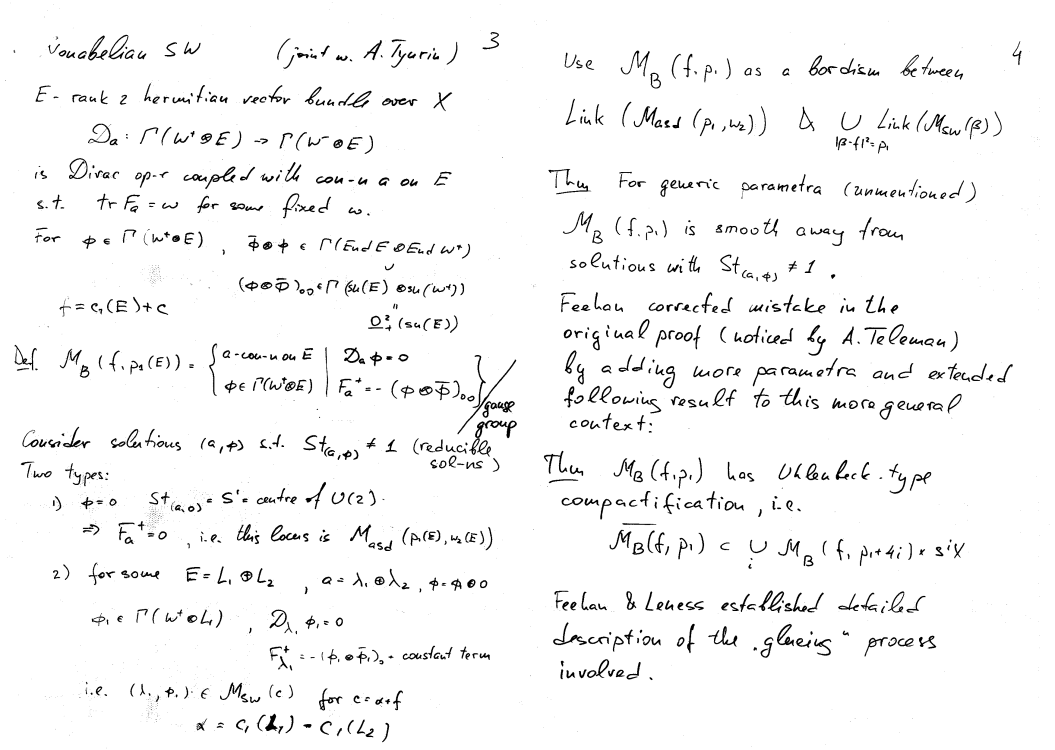 Nonabelian SW (joint w. A. Tyurin) 3
E - rank 2 hermitian vector bundle over X
D_a : Γ(W⁺⊗E) → Γ(W⁻⊗E)
is Dirac op-r coupled with con-n a on E
s.t. tr F_a = ω for some fixed ω.
For φ ∈ Γ(W⁺⊗E) , φ̄⊗φ ∈ Γ(End E ⊗ End W⁺)
∪
(φ⊗φ̄)₀₀ ∈ Γ(su(E) ⊗ su(W⁺))
"
f = c₁(E) + c Ω²₊(su(E))
Def. M_B(f, p₁(E)) = { a - con-n on E | D_a φ = 0
φ ∈ Γ(W⁺⊗E) | F_a⁺ = -(φ⊗φ̄)₀₀ } / gauge group
Consider solutions (a,φ) s.t. St_(a,φ) ≠ 1 (reducible sol-ns)
Two types:
1) φ = 0 St_(a,0) = S¹ = centre of U(2).
⇒ F_a⁺ = 0 , i.e. this locus is M_asd (p₁(E), w₂(E))
2) for some E = L₁ ⊕ L₂ , a = λ₁ ⊕ λ₂ , φ = φ₁ ⊕ 0
φ₁ ∈ Γ(W⁺⊗L₁) , D_λ₁ φ₁ = 0
F⁺_λ₁ = -(φ₁⊗φ̄₁)₀ - constant term
i.e. (λ₁, φ₁) ∈ M_SW (c) for c = α+f
α = c₁(L₁) - c₁(L₂)
4
Use M_B (f, p₁) as a bordism between
Link (M_asd (p₁, w₂)) & ∪ Link (M_SW(β))
|β-f|² = p₁
Thm For generic parametra (unmentioned)
M_B (f, p₁) is smooth away from
solutions with St_(a,φ) ≠ 1 .
Feehan corrected mistake in the
original proof (noticed by A. Teleman)
by adding more parametra and extended
following result to this more general
context:
Thm M_B(f, p₁) has Uhlenbeck-type
compactification, i.e.
M̄_B(f, p₁) ⊂ ∪_i M_B (f, p₁+4i) × SⁱX
Feehan & Leness established detailed
description of the „glueing“ process
involved.